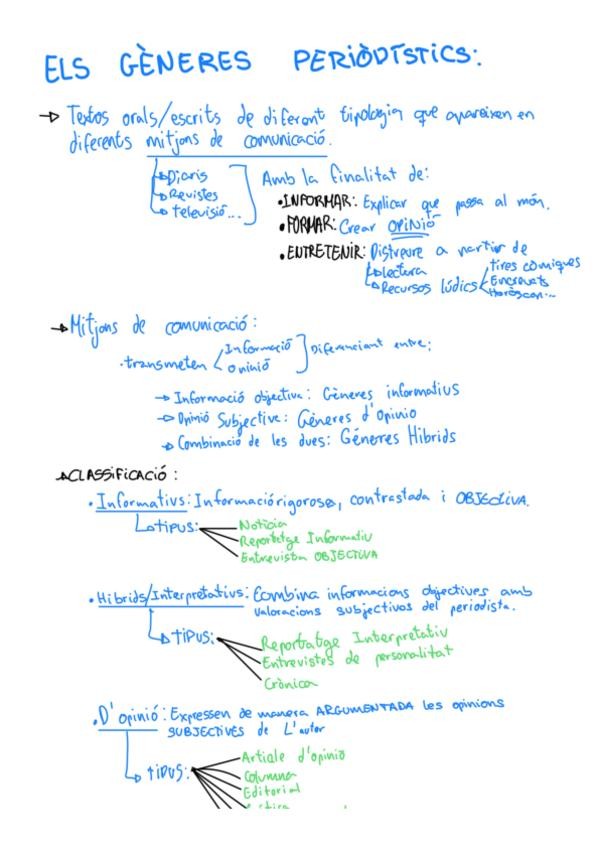 ELS GÈNERES PERIÒDÍSTICS:
→ Textos orals/escrits de diferent tipologia que apareixen en
diferents mitjans de comunicació.
Diaris
Revistes
televisió...
Amb la finalitat de:
•INFORMAR: Explicar que passa al món.
•FORMAR: Crear OPINIÓ
•ENTRETENIR: Distreure a partir de
lectura
Recursos lúdics
tires còmiques
Encreuats
Horòscop...
→Mitjans de comunicació:
·transmeten
Informació
opinió
Diferenciant entre:
→ Informació objectiva: Gèneres informatius
→ Opinió Subjective: Gèneres d'Opinio
→ Combinació de les dues: Géneres Hibrids
→CLASSIFICACIÓ:
•Informatius: Informació rigorosa, contrastada i OBJECTIVA.
→TIPUS:
Notícia
Reportatge Informatiu
Entrevista OBJECTIVA
•Hibrids/Interpretatius: Combina informacions objectives amb
valoracions subjectivos del periodista.
→TIPUS:
Reportatge Interpretatiu
Entrevistes de personalitat
Crònica
•D'opinió: Expressen de manera ARGUMENTADA les opinions
SUBJECTIVES de L'autor
→ TIPUS:
Article d'opinió
Columna
Editorial